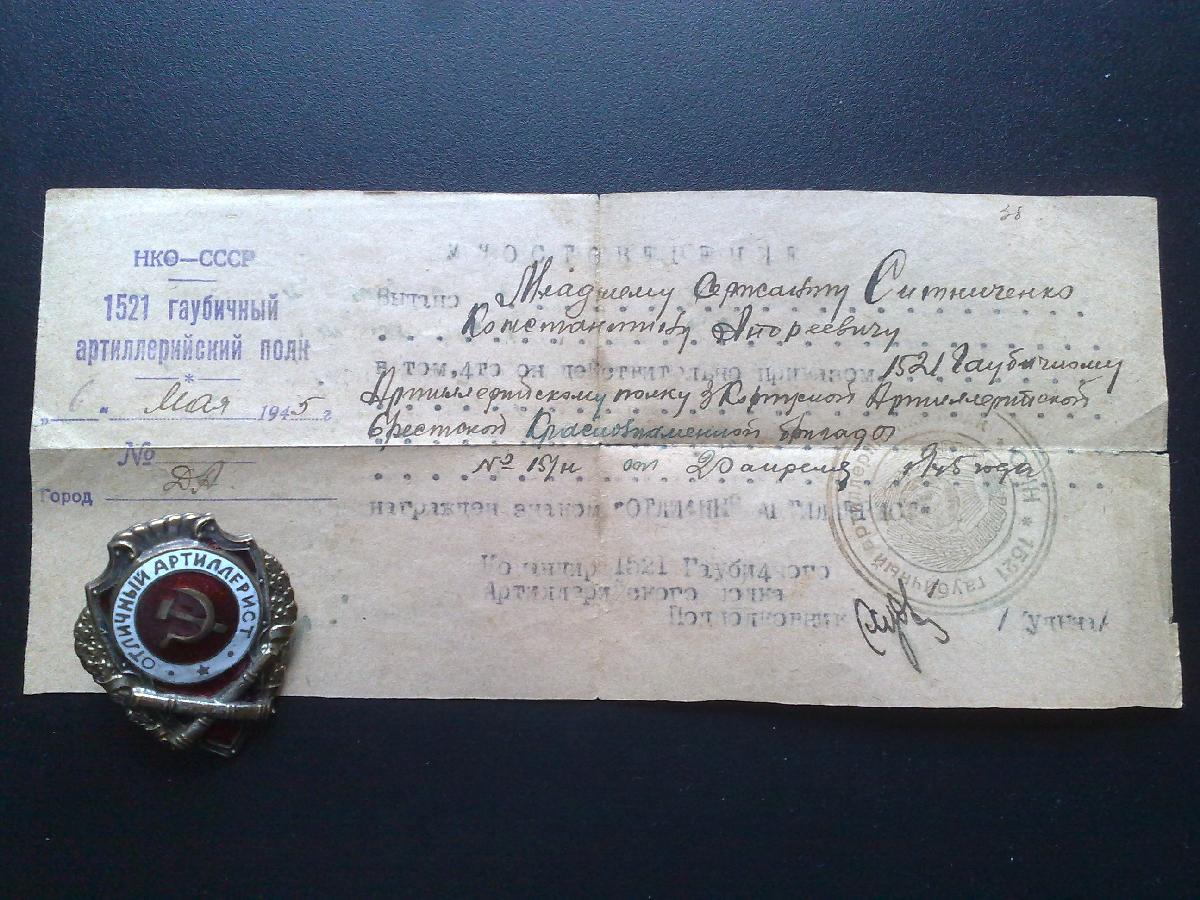 38
НКО—СССР
1521 гаубичный
артиллерийский полк
„6“ Мая 1945 г
№
Город ДА
УДОСТОВЕРЕНИЕ
Выдано Младшему Сержанту Ситниченко
Константину Андреевичу
в том, что он действительно приказом 1521 Гаубичному
Артиллерийскому полку 3 Артиллерийской
Брестской Краснознаменной бригады
№ 15/н от 20 апреля 1945 года
награжден знаком "ОТЛИЧНЫЙ АРТИЛЛЕРИСТ"
Командир 1521 Гаубичного
Артиллерийского полка
Подполковник / /
1521 гаубичный артиллерийский
ОТЛИЧНЫЙ АРТИЛЛЕРИСТ